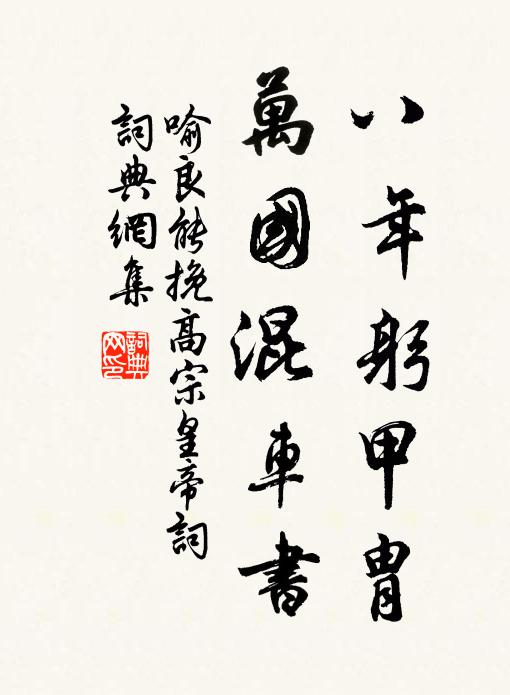 八年躬甲冑
萬國混車書
喻良能挽高宗皇帝詞
詞典網集
詞典
网印